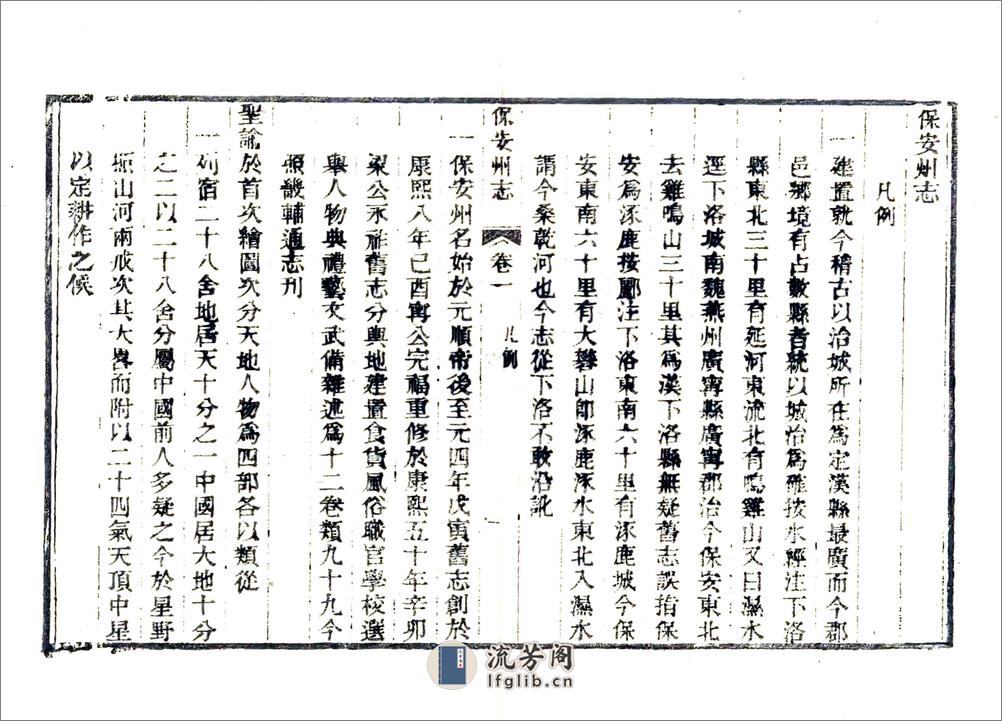 保安州志
凡例
一建置就今稽古以治城所在為定漢縣最廣而今郡
邑鄉境有占數縣者統以城治為確按水經注下洛
縣東北三十里有延河東流北有鳴雞山又曰濕水
逕下洛城南魏燕州廣甯縣廣甯郡治今保安東北
去雞鳴山三十里其為漢下洛縣無疑舊志誤指保
安為涿鹿按酈注下洛東南六十里有涿鹿城今保
安東南六十里有大礬山即涿鹿涿水東北入濕水
謂今桑乾河也今志從下洛不敢沿訛
保安州志
卷一
凡例
一
一保安州名始於元順帝後至元四年戊寅舊志創於
康熙八年己酉甯公完福重修於康熙五十年辛卯
梁公永祚舊志分輿地建置食貨風俗職官學校選
舉人物典禮藝文武備雜述為十二卷類九十九今
照畿輔通志刊
聖諭於首次繪圖次分天地人物為四部各以類從
一列宿二十八舍地居天十分之一中國居大地十分
之二以二十八舍分屬中國前人多疑之今於星野
山河兩戒次其大畧而附以二十四氣天頂中星
以定耕作之候
流芳阁
lfglib.cn